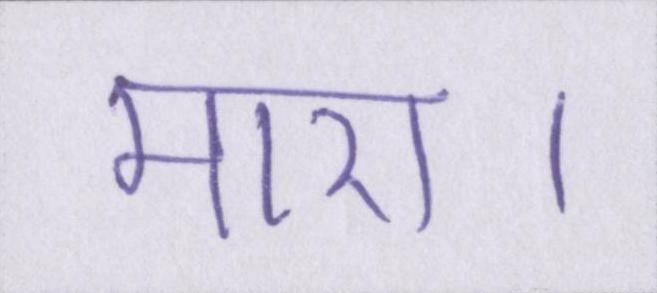 मारा ।